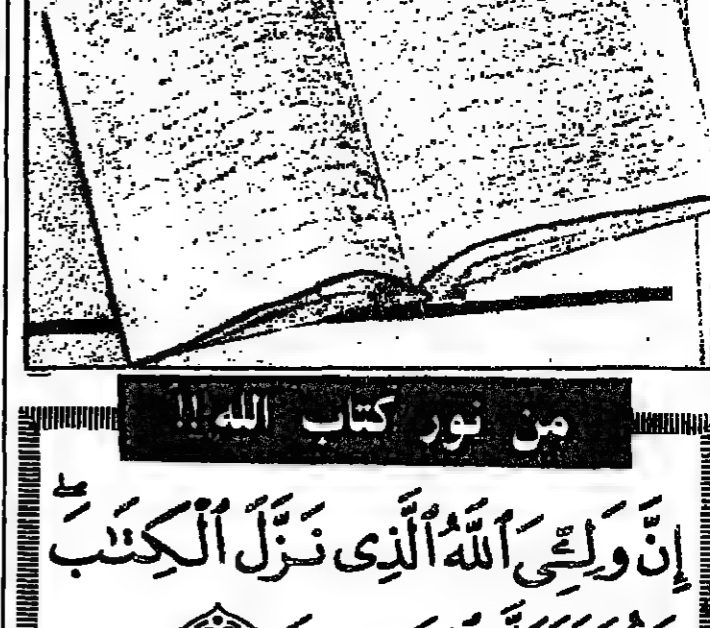 من نور كتاب الله !!
إِنَّ وَلِـِّۧىَ ٱللَّهُ ٱلَّذِى نَزَّلَ ٱلْكِتَٰبَ ۖ